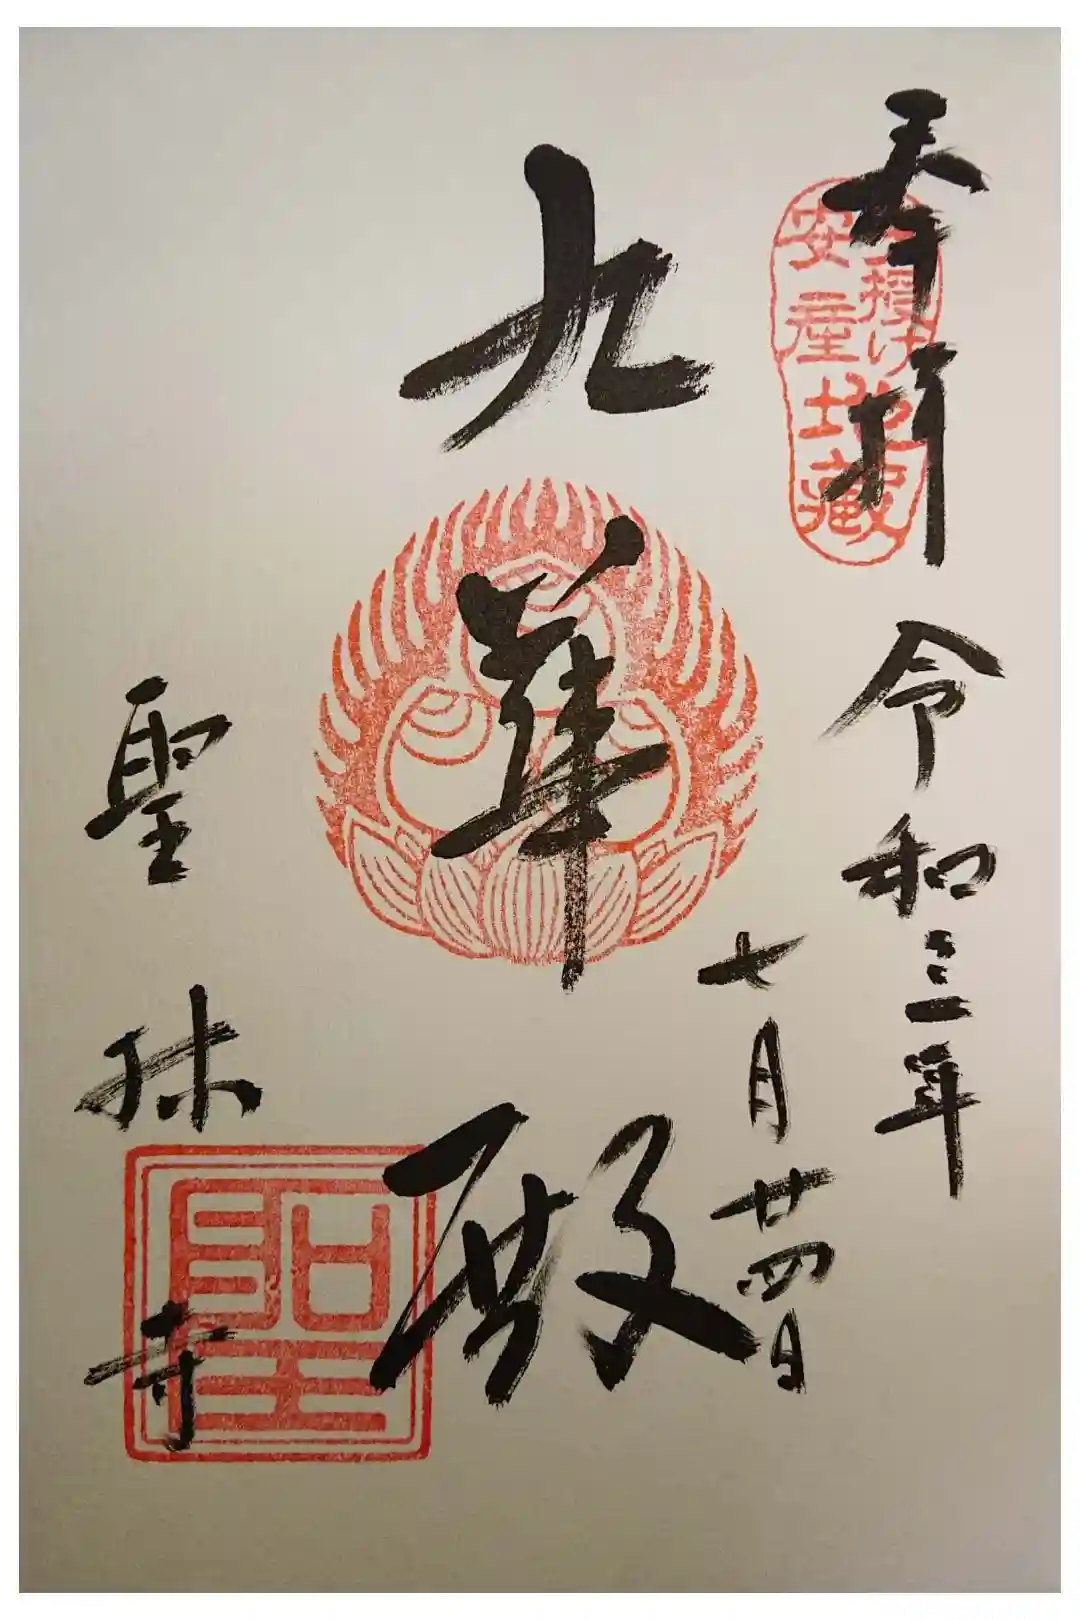 奉拝
令和三年
七月廿四日
子授け
安産
地蔵
九華殿
聖林寺
聖